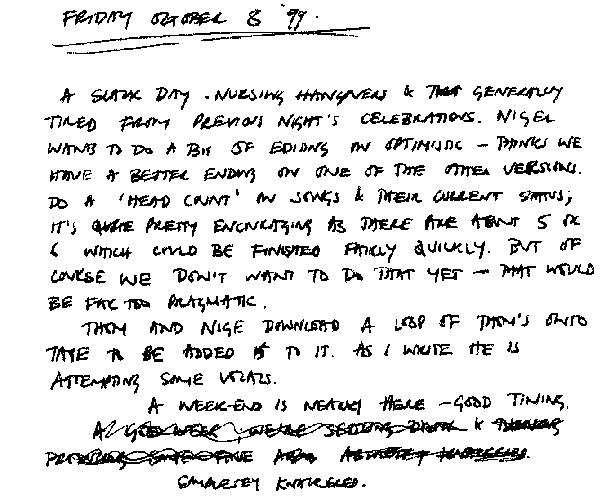 FRIDAY OCTOBER 8 '99.
A SLACK DAY. NURSING HANGOVERS & THAT GENERALLY
TIRED FROM PREVIOUS NIGHT'S CELEBRATIONS. NIGEL
WANTS TO DO A BIT OF EDITING ON OPTIMISTIC - THINKS WE
HAVE A BETTER ENDING ON ONE OF THE OTHER VERSIONS.
DO A 'HEAD COUNT' ON SONGS & THEIR CURRENT STATUS;
IT'S QUITE PRETTY ENCOURAGING AS THERE ARE ABOUT 5 OR
6 WHICH COULD BE FINISHED FAIRLY QUICKLY. BUT OF
COURSE WE DON'T WANT TO DO THAT YET - THAT WOULD
BE FAR TOO PRAGMATIC.
THOM AND NIGE DOWNLOAD A LOOP OF THOM'S ONTO
TAPE TO BE ADDED TO IT. AS I WRITE HE IS
ATTEMPTING SOME VOCALS.
A WEEK-END IS NEARLY HERE - GOOD TIMING.
A GOOD WEEK, WE'RE &